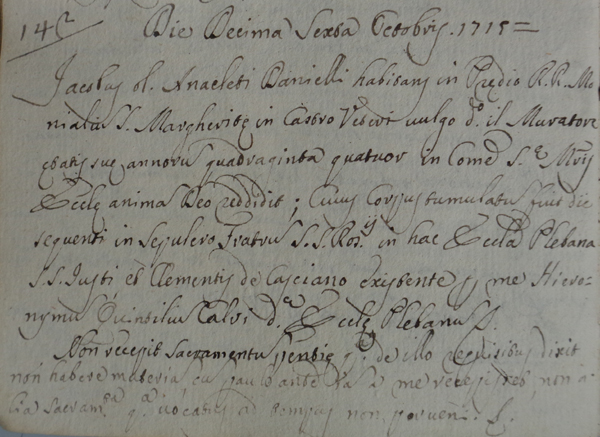 142
Die Decima Sexta Octobris 1715 =
Jacobus ol. Anacleti Danielli habitans in Predio R.R. Mo-
nialiu S. Margheritę in Castro Veteri vulgo d.o il Muratore
ętatis suę annoru quadraginta quatuor in Com.e S.ę M.ris
Ecclę anima Deo reddidit; Cuius Corpus tumulatu fuit die
sequenti in sepulcro Fratru S.S. Ros.ij in hac Eccla Plebana
S.S. Justi et Clementis de Casciano existente p me Hiero-
nymu Quintiliu Calvi d.ę Ecclę Plebanus
Non recepit sacramentu penitę q. de illo requisitus dixit
non habere materia, cu paulo ante a me recepisset, non a-
lia sacram.ta q.a vocatus ad tempus non perveni.